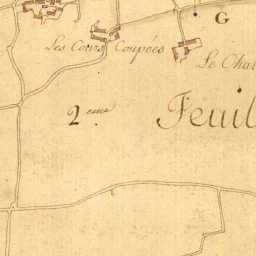 G
Les Cours Coupées
Le Chat
2eme
Feuil